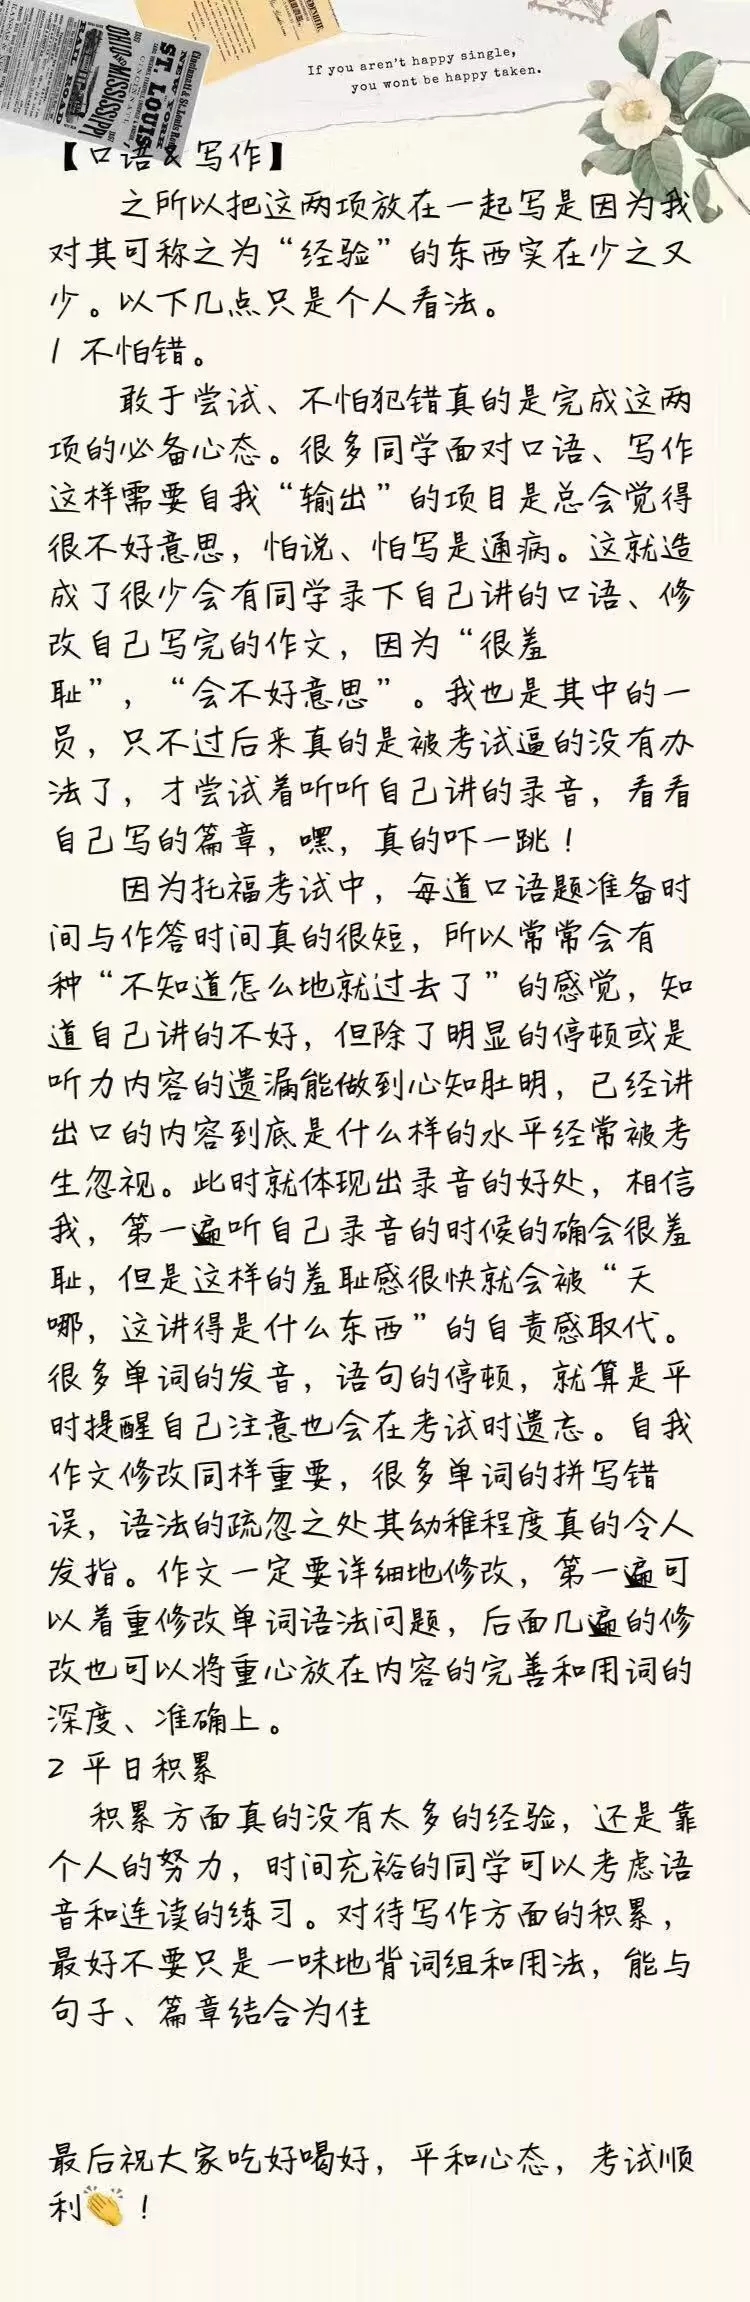 Cincinnati & St. Louis Rail
NEW YORK
ST. LOUIS
OHIO AND MISSISSIPPI
RAIL ROAD
If you aren't happy single,
you wont be happy taken.
【口语&写作】
之所以把这两项放在一起写是因为我
对其可称之为“经验”的东西实在少之又
少。以下几点只是个人看法。
1 不怕错。
敢于尝试、不怕犯错真的是完成这两
项的必备心态。很多同学面对口语、写作
这样需要自我“输出”的项目是总会觉得
很不好意思，怕说、怕写是通病。这就造
成了很少会有同学录下自己讲的口语、修
改自己写完的作文，因为“很羞
耻”，“会不好意思”。我也是其中的一
员，只不过后来真的是被考试逼的没有办
法了，才尝试着听听自己讲的录音，看看
自己写的篇章，嘿，真的吓一跳！
因为托福考试中，每道口语题准备时
间与作答时间真的很短，所以常常会有
种“不知道怎么地就过去了”的感觉，知
道自己讲的不好，但除了明显的停顿或是
听力内容的遗漏能做到心知肚明，已经讲
出口的内容到底是什么样的水平经常被考
生忽视。此时就体现出录音的好处，相信
我，第一遍听自己录音的时候的确会很羞
耻，但是这样的羞耻感很快就会被“天
哪，这讲得是什么东西”的自责感取代。
很多单词的发音，语句的停顿，就算是平
时提醒自己注意也会在考试时遗忘。自我
作文修改同样重要，很多单词的拼写错
误，语法的疏忽之处其幼稚程度真的令人
发指。作文一定要详细地修改，第一遍可
以着重修改单词语法问题，后面几遍的修
改也可以将重心放在内容的完善和用词的
深度、准确上。
2 平日积累
积累方面真的没有太多的经验，还是靠
个人的努力，时间充裕的同学可以考虑语
音和连读的练习。对待写作方面的积累，
最好不要只是一味地背词组和用法，能与
句子、篇章结合为佳
最后祝大家吃好喝好，平和心态，考试顺
利👏！